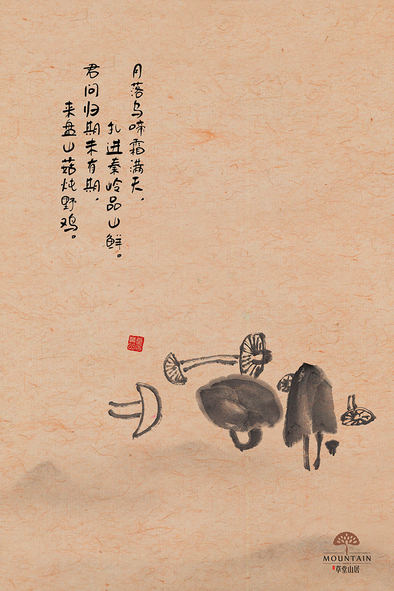 月落乌啼霜满天，
扎进秦岭品山鲜。
君问归期未有期，
来盘山菇炖野鸡。
MOUNTAIN
草堂山居